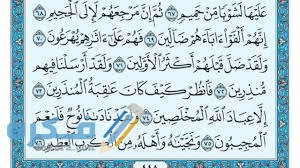 عَلَيْهَا لَشَوْبًا مِّنْ حَمِيمٍ ٦٧ ثُمَّ إِنَّ مَرْجِعَهُمْ لَإِلَى الْجَحِيمِ ٦٨
إِنَّهُمْ أَلْفَوْا آبَاءَهُمْ ضَالِّينَ ٦٩ فَهُمْ عَلَى آثَارِهِمْ يُهْرَعُونَ ٧٠
وَلَقَدْ ضَلَّ قَبْلَهُمْ أَكْثَرُ الْأَوَّلِينَ ٧١ وَلَقَدْ أَرْسَلْنَا فِيهِم
مُّنذِرِينَ ٧٢ فَانظُرْ كَيْفَ كَانَ عَاقِبَةُ الْمُنذَرِينَ ٧٣
إِلَّا عِبَادَ اللَّهِ الْمُخْلَصِينَ ٧٤ وَلَقَدْ نَادَانَا نُوحٌ فَلَنِعْمَ
الْمُجِيبُونَ ٧٥ وَنَجَّيْنَاهُ وَأَهْلَهُ مِنَ الْكَرْبِ الْعَظِيمِ ٧٦
٤٤٨